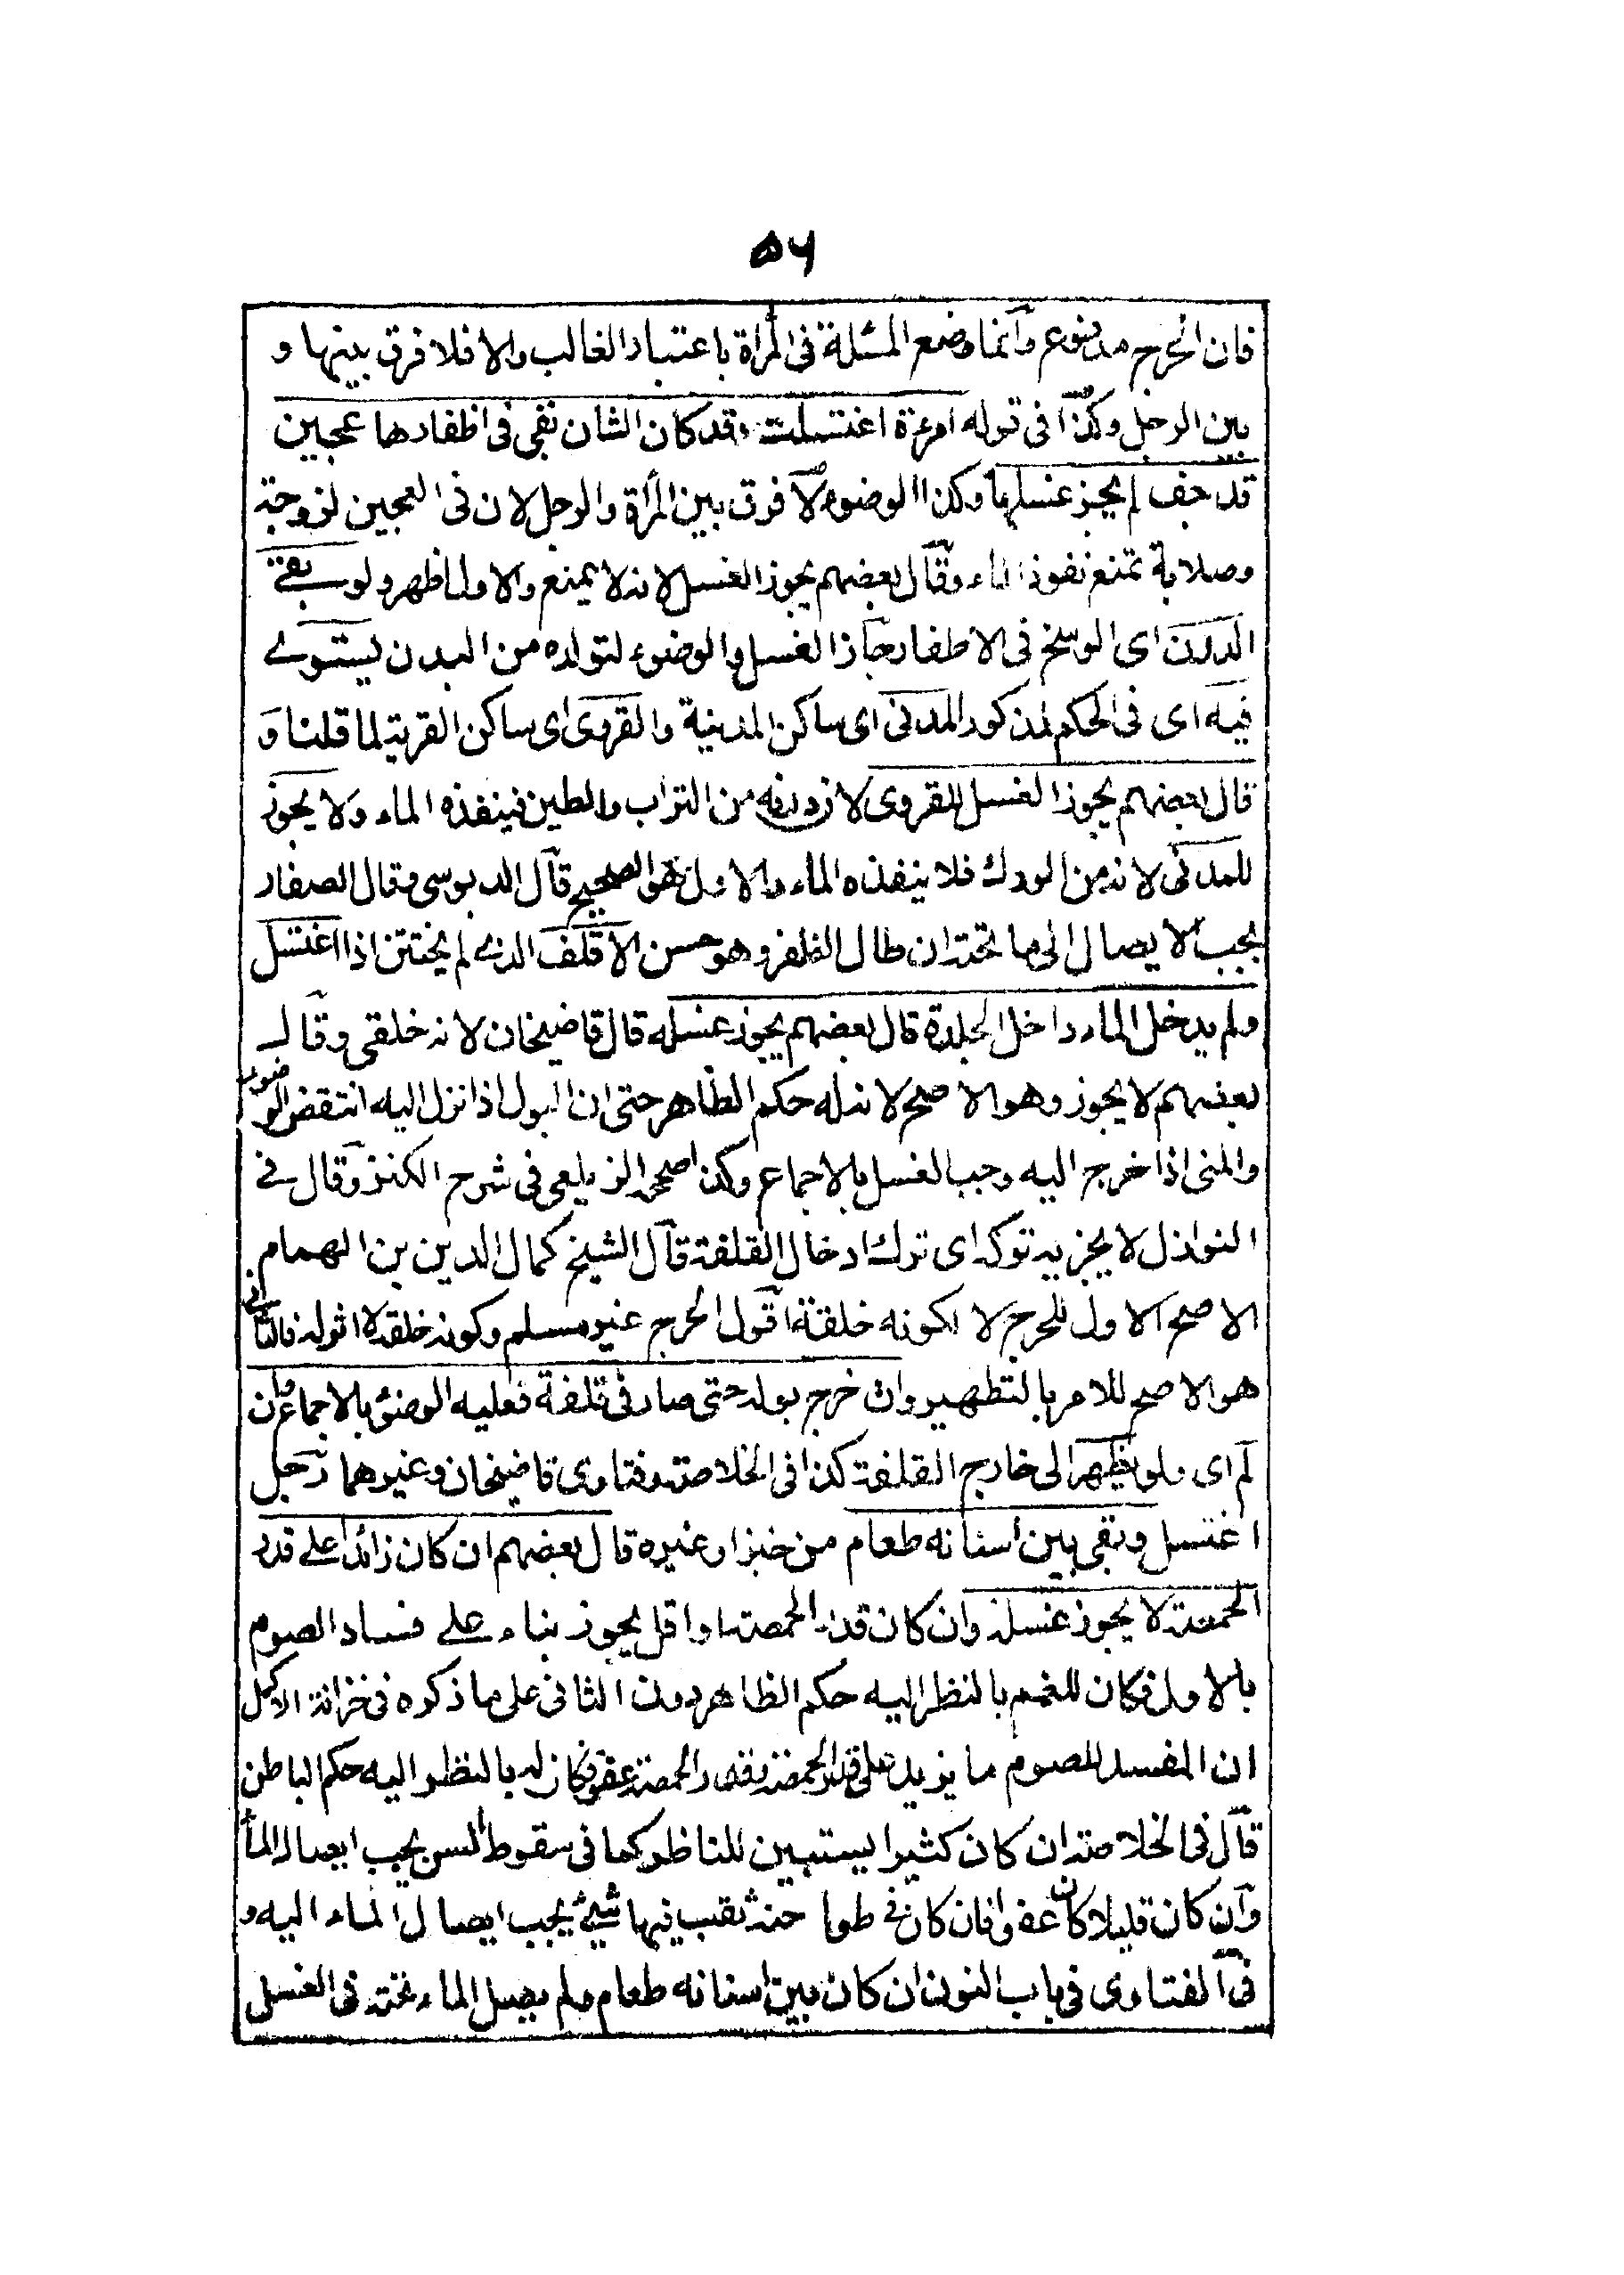 ۵۶
فان الحرج مدفوع وانما وضع المسئلة فى المرأة باعتبار الغالب والا فلا فرق بينها و
بين الرجل وكذا فى قوله امرءة اغتسلت وقد كان الشان بقى فى اظفارها عجين
قد جف لم يجز غسلها وكذا الوضوء لا فرق بين المرأة والرجل لان فى العجين لزوجة
وصلابة تمنع نفوذ الماء وقال بعضهم يجوز الغسل لانه لا يمنع والاول اظهر ولو بقے
الدرن اى الوسخ فى الاظفار جاز الغسل والوضوء لتولده من البدن يستوے
فيه اى فى الحكم المذكور المدنى اى ساكن المدينة والقروى اى ساكن القرية لما قلنا و
قال بعضهم يجوز الغسل للقروى لان درنه من التراب والطين فينفذه الماء ولا يجوز
للمدنى لانه من الودك فلا ينفذه الماء والاول هو الصحيح قال الدبوسى وقال الصفار
يجب الايصال الى ما تحته ان طال الظفر وهو حسن الاقلف الذے لم يختتن اذا اغتسل
ولم يدخل الماء داخل الجلدة قال بعضهم يجوز غسله قال قاضيخان لانه خلقى وقال
بعضهم لا يجوز وهو الاصح لانه له حكم الظاهر حتى ان البول اذا نزل اليه انتقض الوضوء
والمنى اذا خرج اليه وجب الغسل بالاجماع وكذا صححه الزيلعى فى شرح الكنز وقال فے
النوازل لا يجزيه تركه اى ترك ادخال القلفة قال الشيخ كمال الدين بن الهمام
الاصح الاول للحرج لا لكونه خلقة اقول الحرج غير مسلم وكونه خلقة لا اثر له فالثانى
هو الاصح للامر بالتطهير وان خرج بوله حتى صار فى قلفة فعليه الوضوء بالاجماع وان
لم اى ولو يظهر الى خارج القلفة كذا فى الخلاصة وفتاوى قاضيخان وغيرهما رجل
اغتسل وبقى بين اسنانه طعام من خبز او غيره قال بعضهم ان كان زائدا على قدر
الحمصة لا يجوز غسله وان كان قدر الحمصة او اقل يجوز بناء على فساد الصوم
بالاول فكان للفم بالنظر اليه حكم الظاهر دون الثانى على ما ذكره فى خزانة الاكمل
ان المفسد للصوم ما يزيد على قدر الحمصة فقدر الحمصة عفو فكان له بالنظر اليه حكم الباطن
قال فى الخلاصة ان كان كثيرا يستبين للناظر كما فى سقوط السن يجب ايصال الماء
وان كان قليلا كان عفوا فان كان فى طواحنه ثقب فيها شيئ يجب ايصال الماء اليه و
فى الفتاوى فى باب النون ان كان بين اسنانه طعام ولم يصل الماء تحته فى الغسل